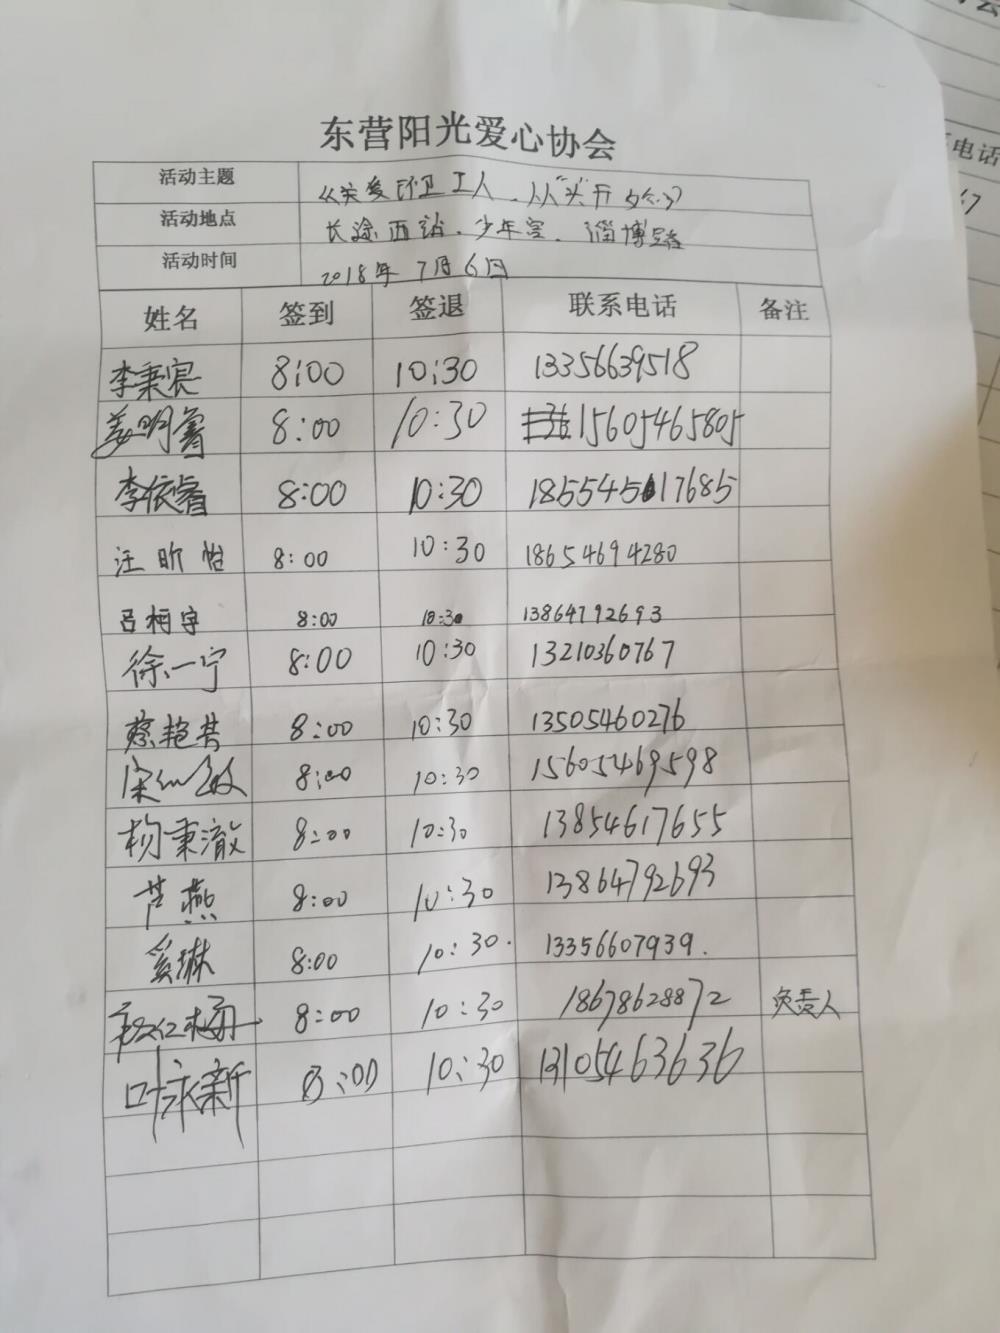 东营阳光爱心协会
活动主题 "关爱环卫工人,从"头"开始"
活动地点 长途西站、少年宫、淄博路
活动时间 2018年7月6日
姓名 签到 签退 联系电话 备注
李秉宸 8:00 10:30 13356639518
姜明睿 8:00 10:30 15605465805
李依睿 8:00 10:30 1855454517685
汪昕怡 8:00 10:30 18654694280
吕柯宇 8:00 10:30 13864792693
徐一宁 8:00 10:30 13210360767
蔡艳芸 8:00 10:30 13505460276
8:00 10:30 15605469598
杨秉澈 8:00 10:30 13854617655
芦燕 8:00 10:30 13864792693
奚琳 8:00 10:30. 13356607939.
8:00 10:30 18678628872 负责人
叶永新 8:00 10:30 13105463636
电话